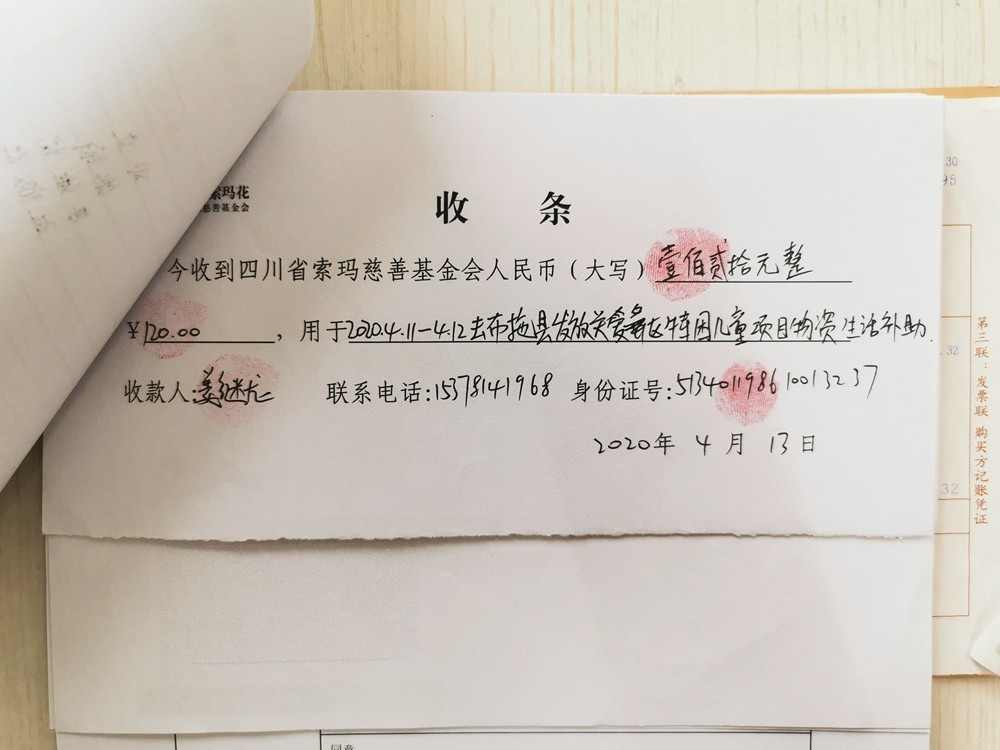 索玛花
慈善基金会
收 条
今收到四川省索玛慈善基金会人民币（大写）壹佰贰拾元整
¥120.00，用于2020.4.11-4.12去布拖县发放关爱彝区特困儿童项目物资生活补助.
收款人: 联系电话:15378141968 身份证号:513401198610013237
2020年 4月 13日
30
95
.32
32
第三联：发票联 购买方记账凭证
同意